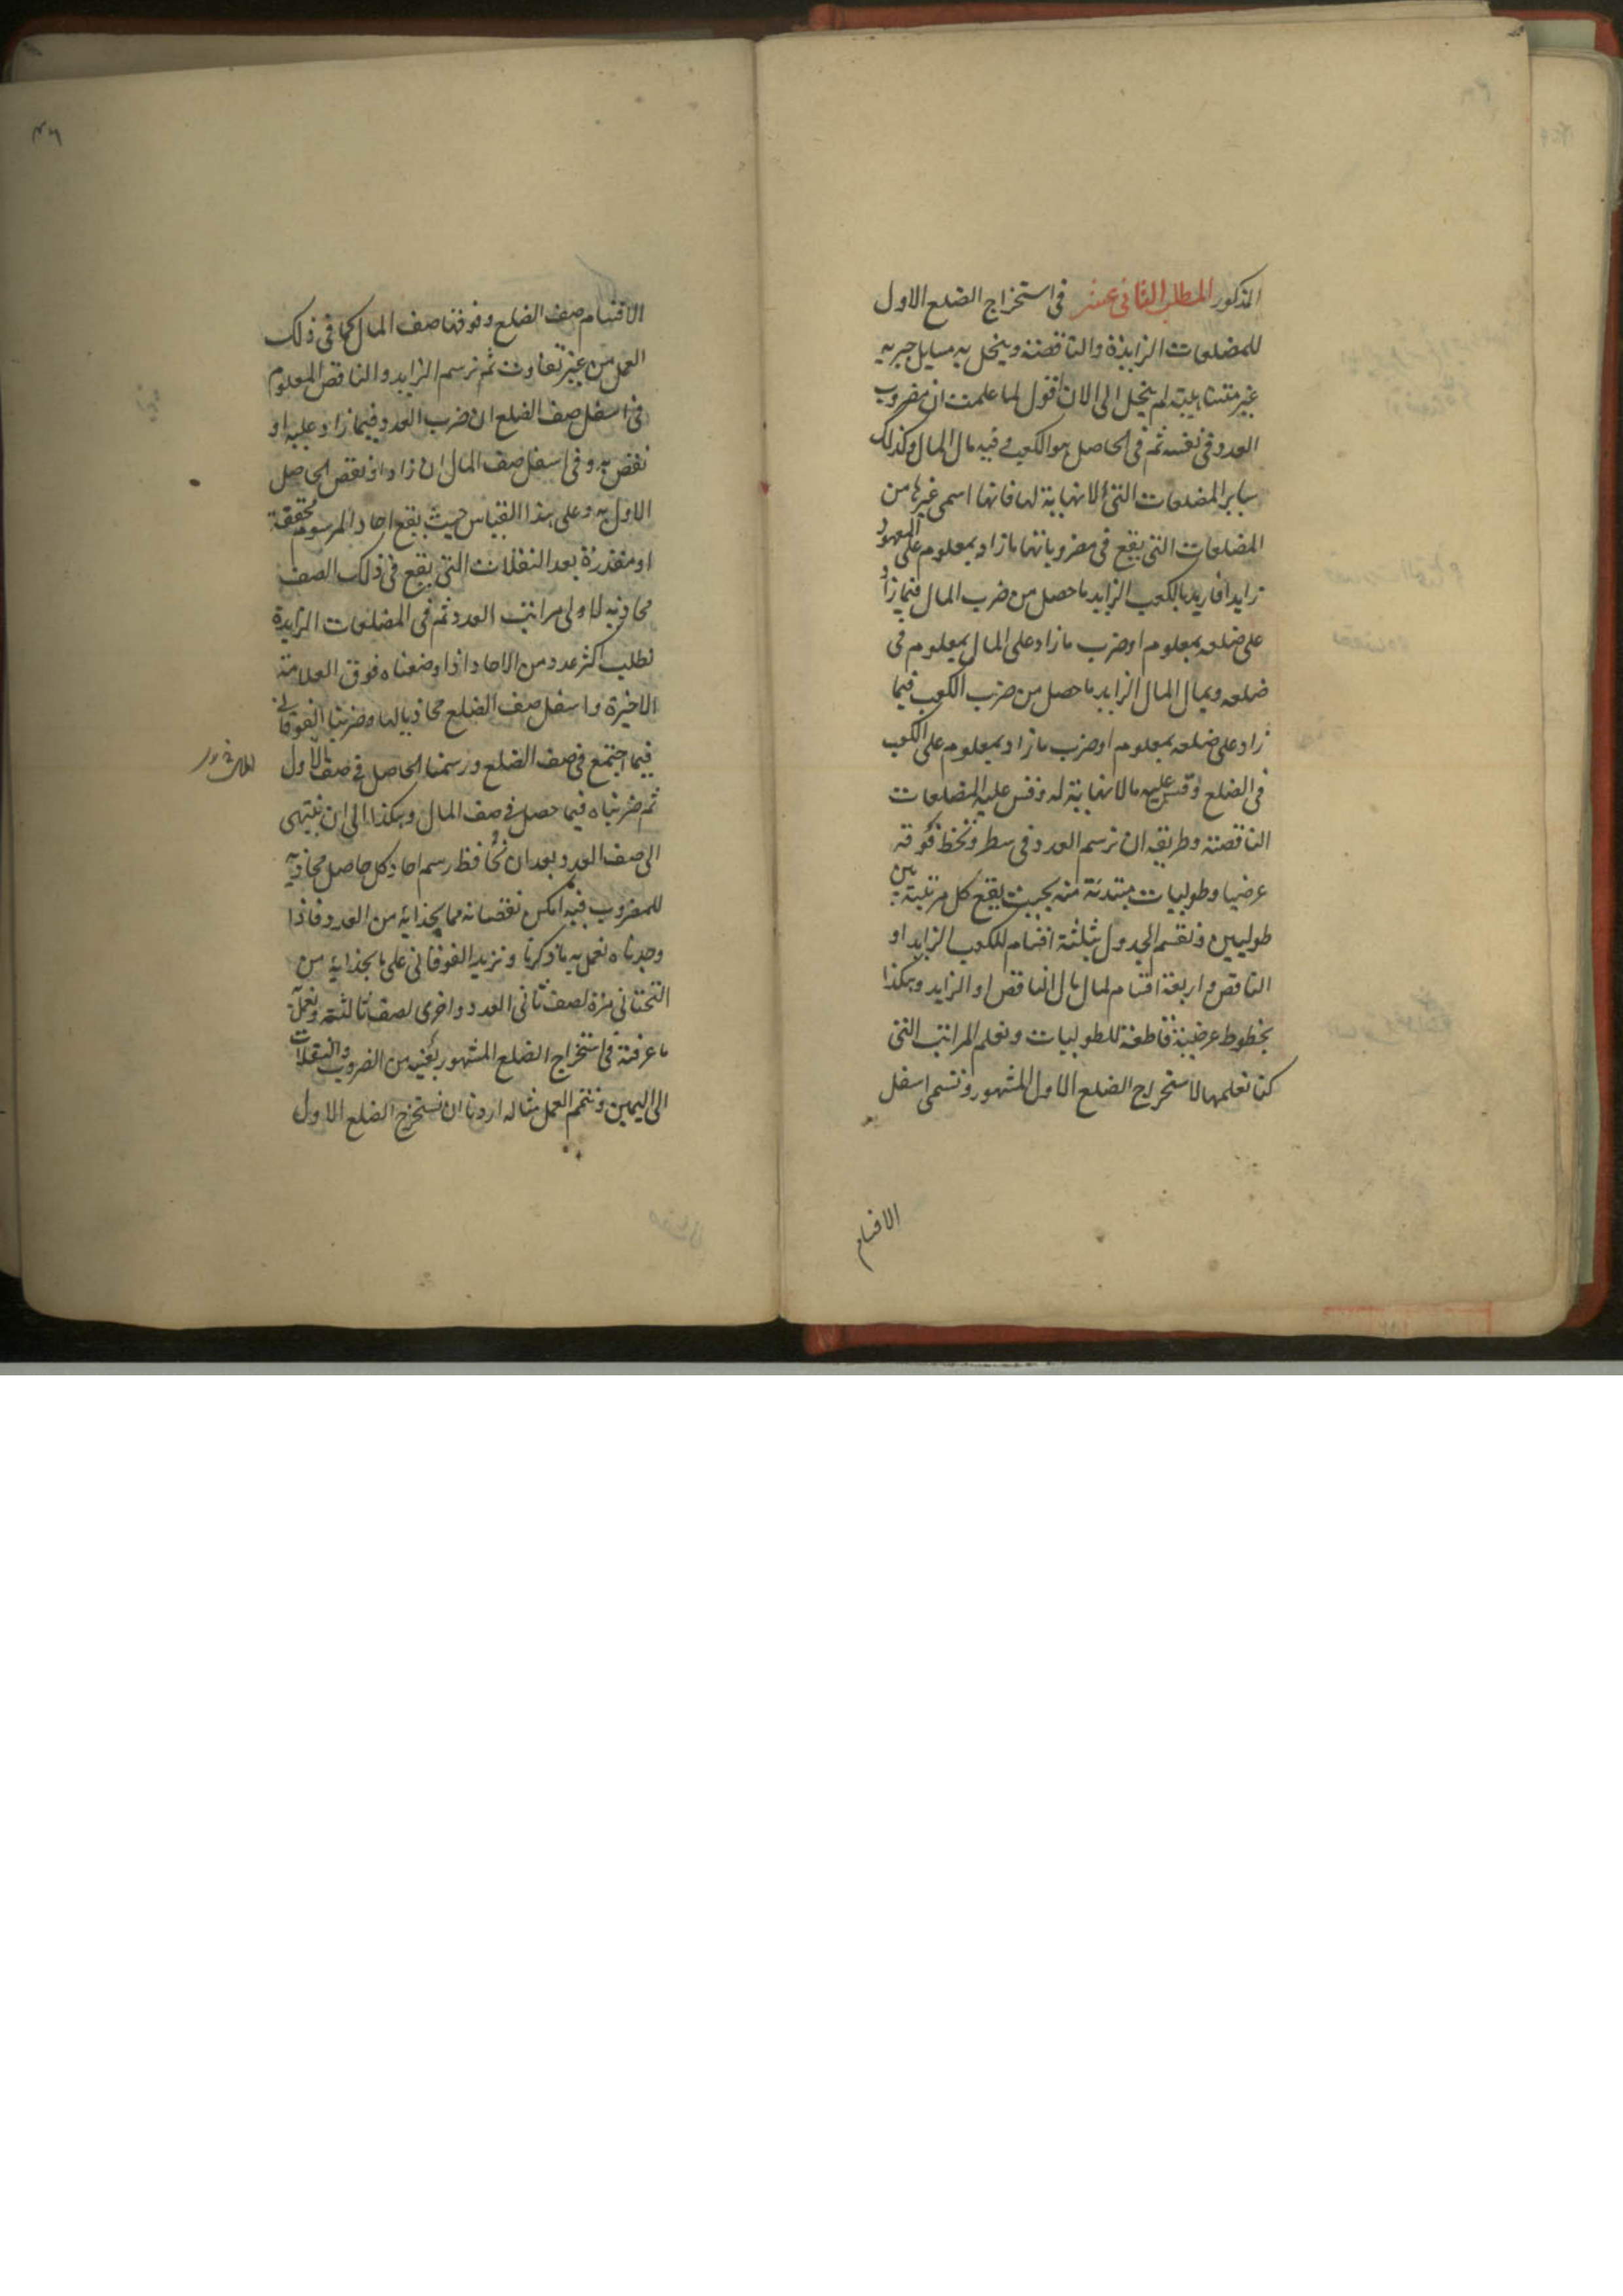 المذكور المطلب الثانى عشر فى استخراج الضلع الاول
للمضلعات الزايدة والناقصة وينحل به مسايل جبريه
غير متناهية لم ينحل الى الان اقول لما علمت ان مضروب
العدد فى نفسه ثم فى الحاصل هو الكعب وفيه مال المال وكذلك
ساير المضلعات التى لا نهاية لها فانها اسمى غيرها من
المضلعات التى يقع فى مضروباتها ما زاد بمعلوم على المعهود
زايدا فاريد بالكعب الزايد ما حصل من ضرب المال فيما زاد
على ضلعه بمعلوم او ضرب ما زاد على المال بمعلوم فى
ضلعه وبمال المال الزايد ما حصل من ضرب الكعب فيما
زاد على ضلعه بمعلوم او ضرب ما زاد بمعلوم على الكعب
فى الضلع وقس عليه ما لا نهاية له وقس عليه المضلعات
الناقصة وطريقه ان نرسم العدد فى سطر ونخط فوقه
عرضيا وطوليات مبتدئة منه بحيث يقع كل مرتبة بين
طوليين ونقسم الجدول بثلثة اقسام للكعب الزايد او
الناقص واربعة اقسام لمال مال الناقص او الزايد وهكذا
بخطوط عرضية قاطعة للطوليات ونعلم المراتب التى
كنا نعلمها لاستخراج الضلع الاول المشهور ونسمى اسفل
الاقسام
الاقسام صف الضلع وفوقها صف المال كما فى ذلك
العمل من غير تفاوت ثم نرسم الزايد والناقص المعلوم
فى اسفل صف الضلع ان ضرب العدد فيما زاد عليه او
نقص به وفى اسفل صف المال ان زاد او نقص الحاصل
الاول به وعلى هذا القياس حيث يقع احاد المرسوم محققة
او مقدرة بعد النقلات التى يقع فى ذلك الصف
محاذيه لاولى مراتب العدد ثم فى المضلعات الزايدة
نطلب اكثر عدد من الاحاد اذا وضعناه فوق العلامة
الاخيرة واسفل صف الضلع محاذيا لها وضربنا الفوقانى
فيما اجتمع فى صف الضلع ورسمنا الحاصل فى صف الاول
ثم ضربناه فيما حصل فى صف المال وهكذا الى ان ينتهى
الى صف العدد بعد ان نحافظ رسم احاد كل حاصل محاذيه
للمضروب فيه امكن نقصانه مما بحذائه من العدد فاذا
وجدناه نعمل به ما ذكرنا ونزيد الفوقانى على ما بحذائه من
التحتانى مرة لصف ثانى العدد واخرى لصف ثالثه ونعمل
ما عرفته فى استخراج الضلع المشهور بعينه من الضروب والنقلات
الى اليمين ونتمم العمل مثاله اردنا ان نستخرج الضلع الاول